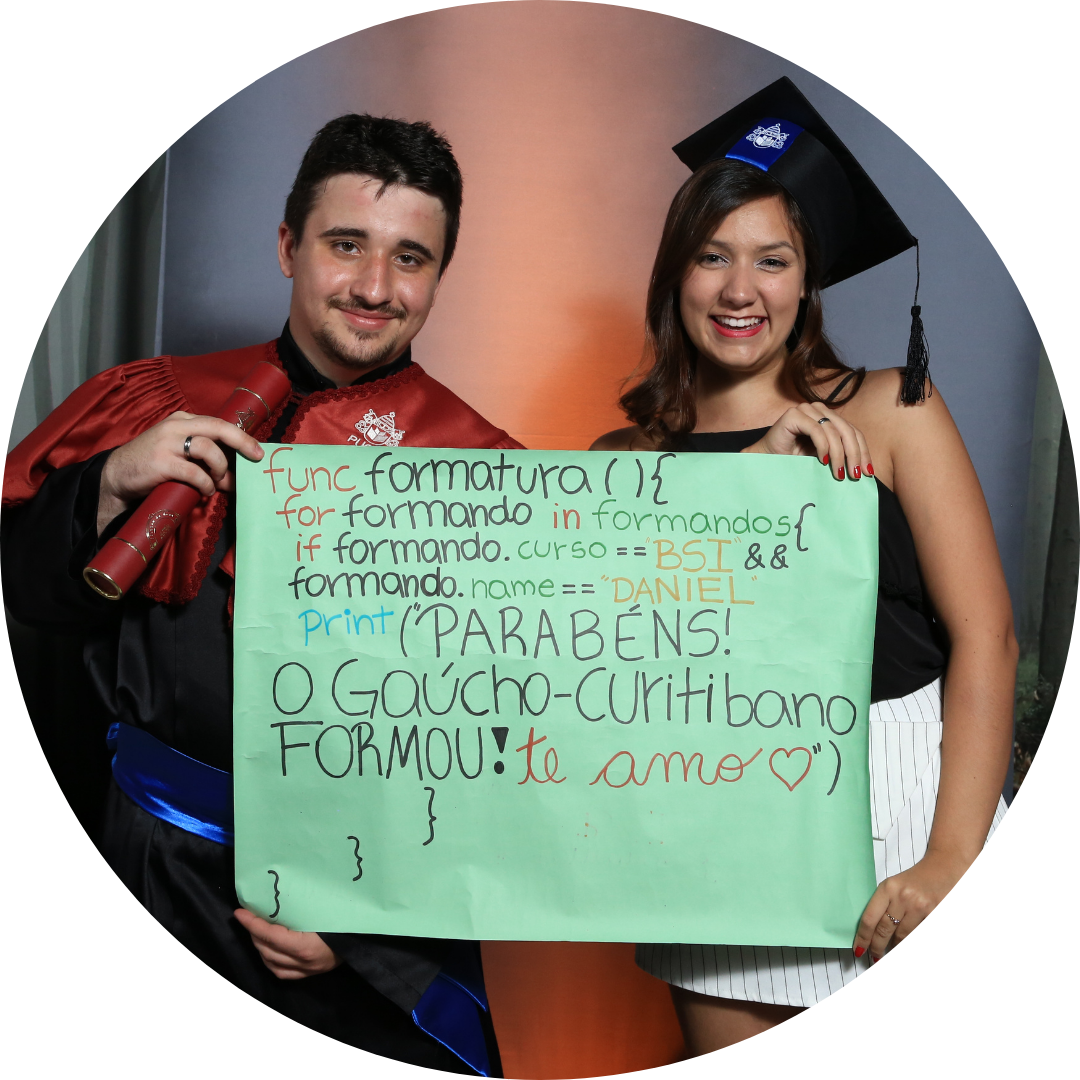 func formatura ( ) {
for formando in formandos {
if formando.curso == "BSI" &&
formando.name == "DANIEL"
print ("PARABÉNS!
O GaÚcho-Curitibano
FORMOU! te amo ♡")
}
}
}